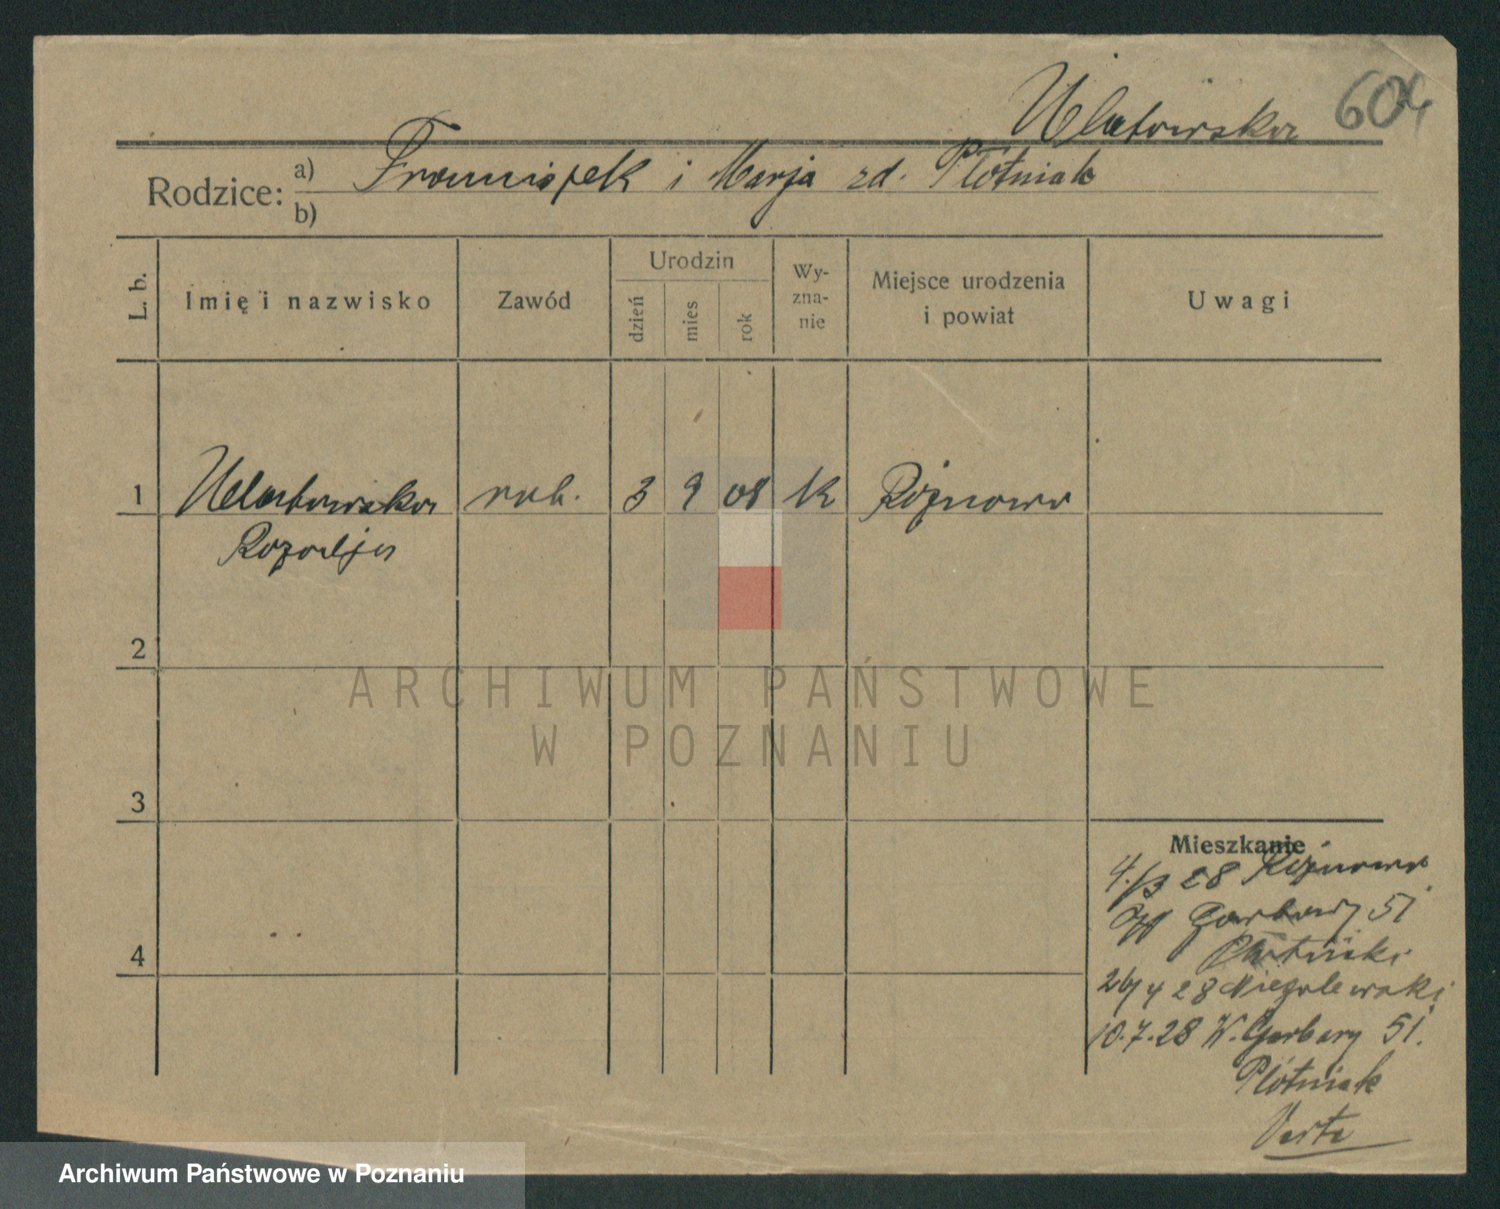 Ulatowska 604
Rodzice: a) Franciszek i Marja zd. Płótniak
b)
L. b. Imię i nazwisko Zawód Urodzin dzień mies rok Wy-zna-nie Miejsce urodzenia i powiat Uwagi
1 Ulatowska rob. 3 9 08 K Rożnowo
Rozalja
2
ARCHIWUM PAŃSTWOWE
W POZNANIU
3
Mieszkanie
4./3 28 Rożnowo
Garbary 51
4
26/4 28 Niegolewski
10.7.28 W. Garbary 51.
Płótniak
Verte
Archiwum Państwowe w Poznaniu